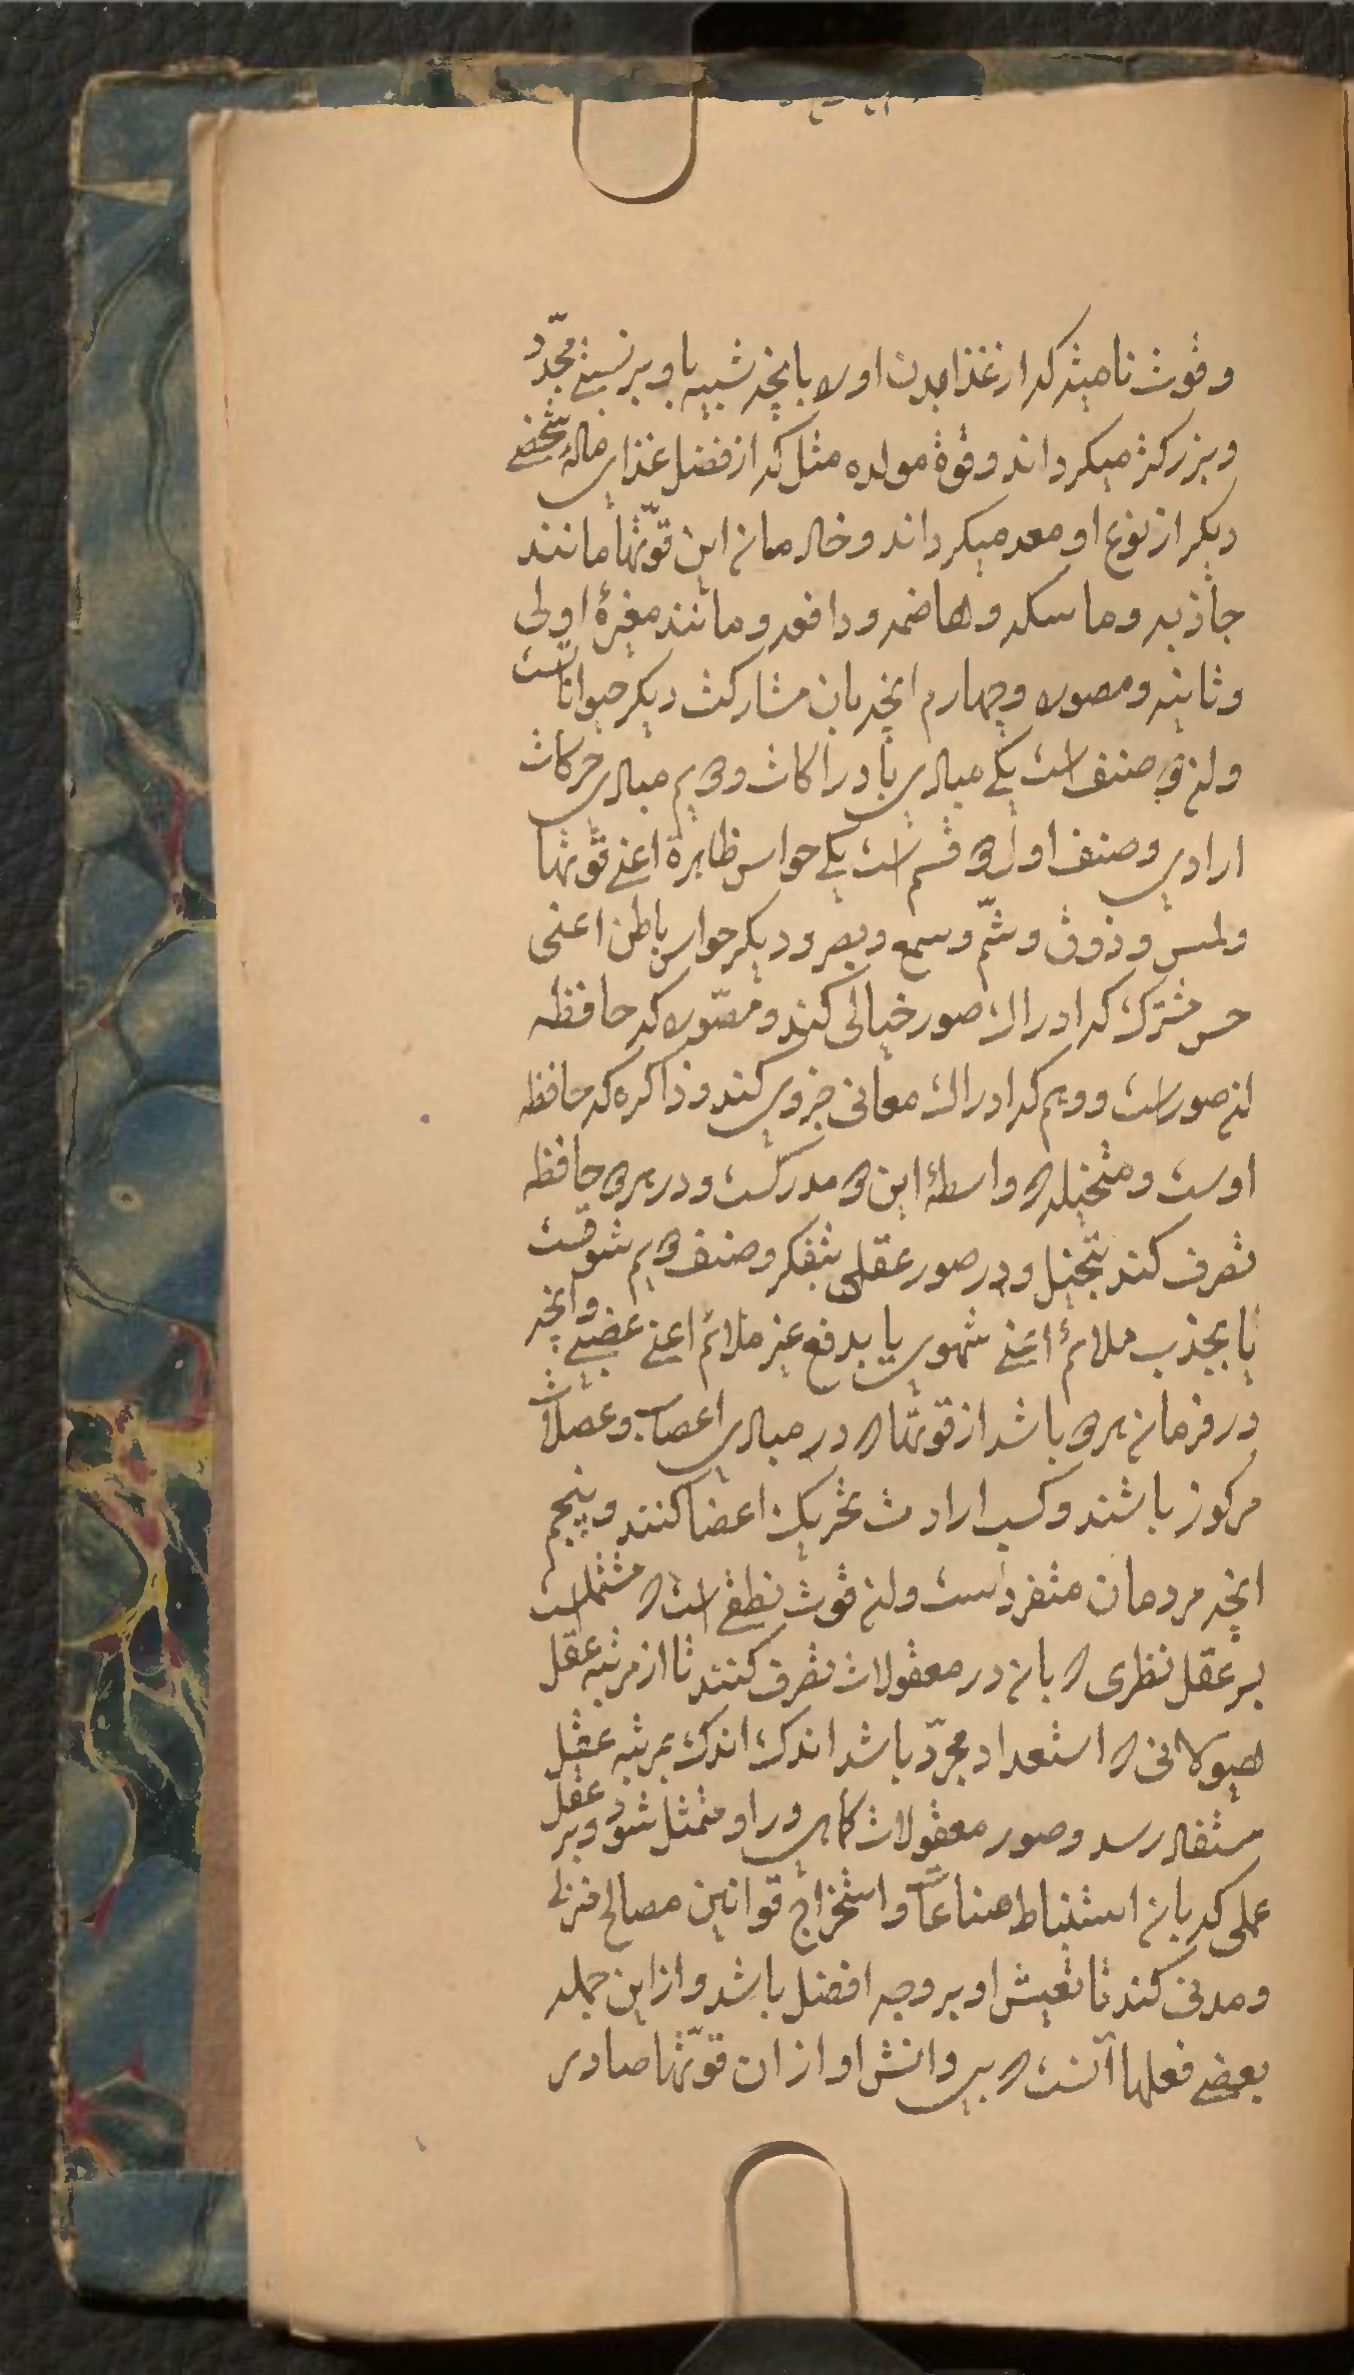 وقوت نامیه که از غذا بدن اورا بانچه شبیه باو بر نسبتی مجدّد
وبزرکتر میکرداند وقوة مولده مثل که از فضل غذای مادۀ شخصی
دیکر از نوع او معد میکرداند وخادمان این قوّتها مانند
جاذبه وماسکه وهاضمه ودافعه ومانند مغیرۀ اولی
وثانیه ومصوره وچهارم انچه بان مشارکت دیکر حیواناتست
وان دو صنف است یکی مبادی بادراکات ودویم مبادی حرکات
ارادی وصنف اول دو قسم است یکی حواس ظاهرة اعنی قوتها
ولمس وذوق وشمّ وسمع وبصر ودیکر حواس باطن اعنی
حس مشترک که ادراک صور خیالی کند ومصّوره که حافظه
ان صور است ووهم که ادراک معانی جزوی کند وذاکره که حافظه
اوست ومتخیله که واسطۀ این دو مدرکست ودر هر دو حافظه
تصرف کند بتخیل ودر صور عقلی بتفکر وصنف دویم شوقست
یا بجذب ملائم اعنی شهوی یا بدفع غیر ملائم اعنی غضبی وانچه
در فرمان هر دو باشد از قوتها که در مبادی اعصاب وعضلات
مرکوز باشند وکسب ارادت تحریک اعضا کنند وپنجم
انچه مردمان متفرد است وان قوت نطقی است که مشتملست
بر عقل نظری که بان در معقولات تصرف کنند تا از مرتبه عقل
هیولانی که استعداد مجرّد باشد اندک اندک بمرتبه عقل
مستفاد رسد وصور معقولات کماهی در او متمثل شود وبر عقل
عملی که بان استنباط صناعات واستخراج قوانین مصالح منزلی
ومدنی کند تا تعیش او بر وجه افضل باشد واز این جمله
بعضی فعلها آنست که بی دانش او از ان قوّتها صادر